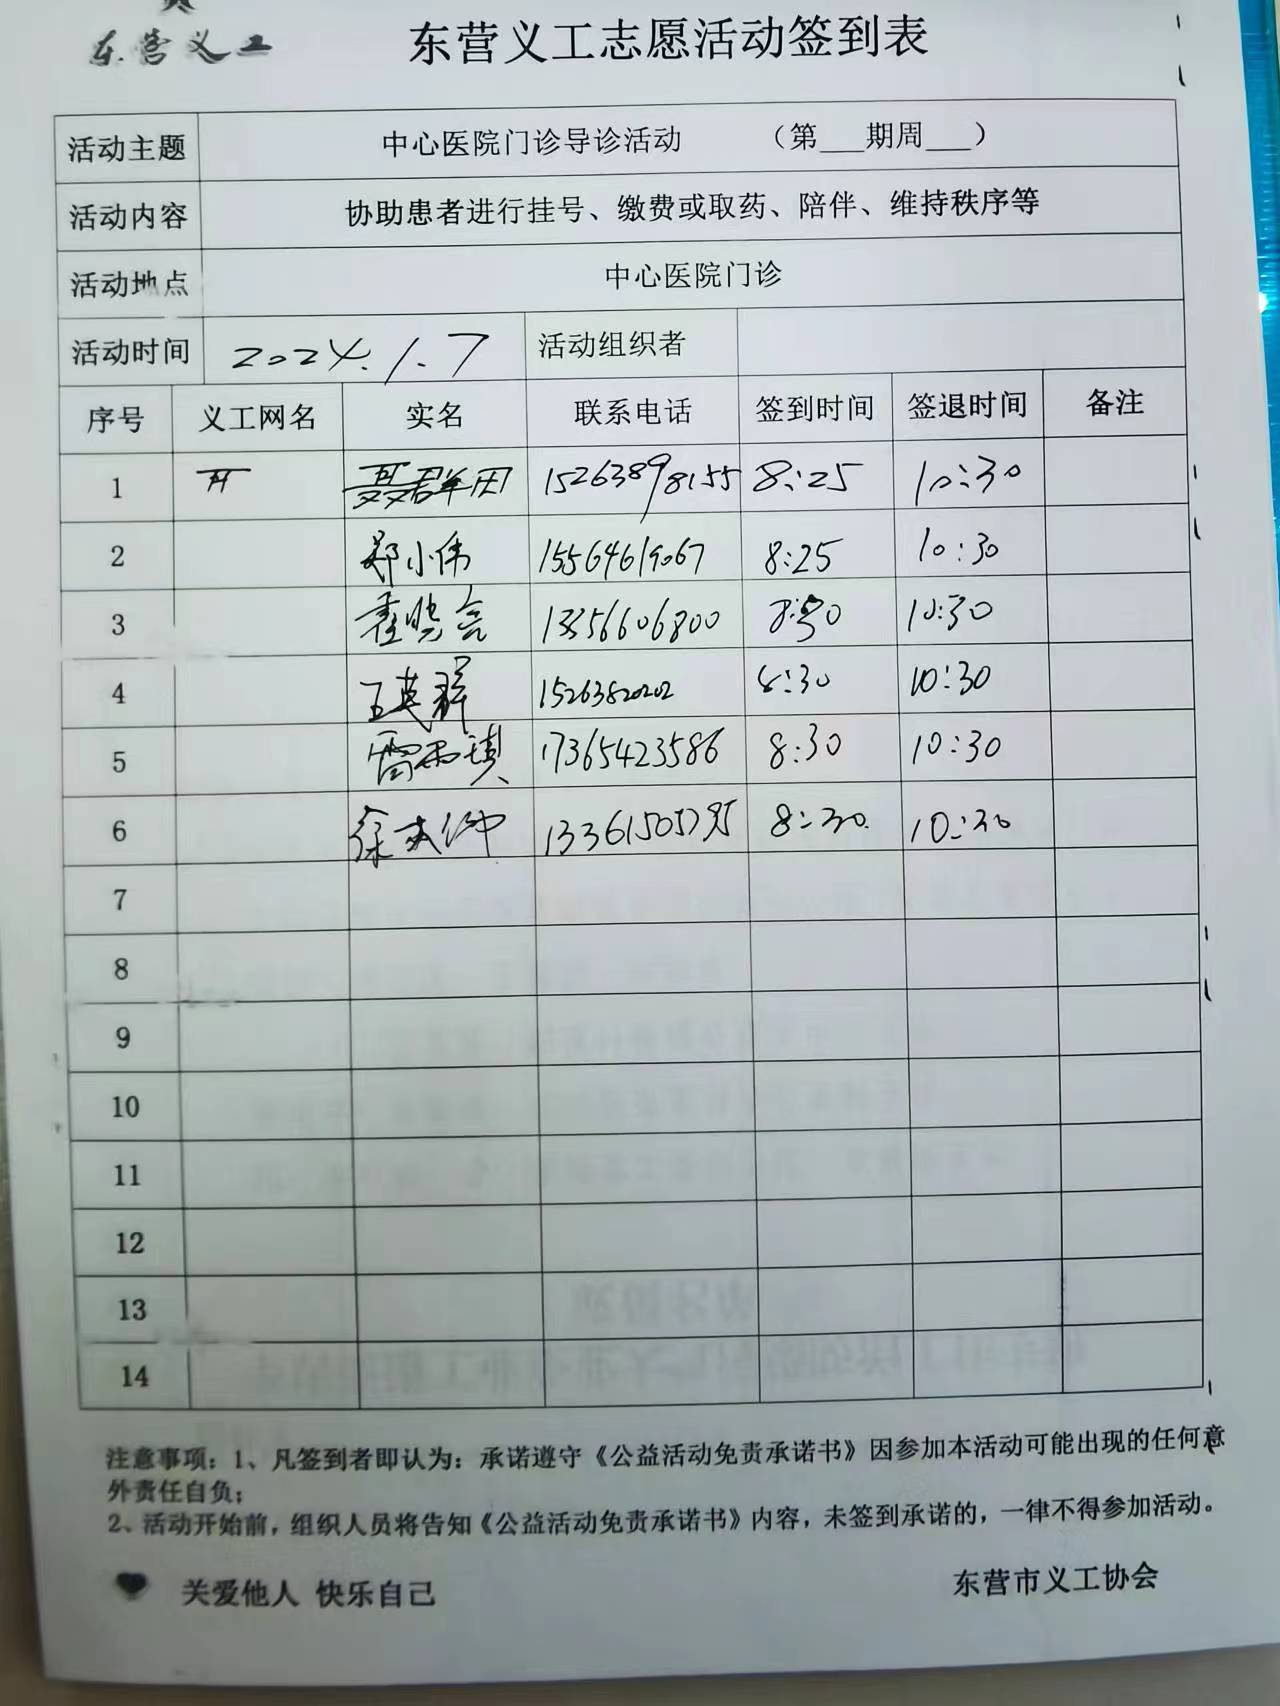 东营义工
东营义工志愿活动签到表
活动主题 中心医院门诊导诊活动 （第___期周___）
活动内容 协助患者进行挂号、缴费或取药、陪伴、维持秩序等
活动地点 中心医院门诊
活动时间 2024.1.7 活动组织者
序号 义工网名 实名 联系电话 签到时间 签退时间 备注
1 聂群田 15263898155 8:25 10:30
2 郑小伟 15564619067 8:25 10:30
3 13356606800 8:30 10:30
4 王英群 15263820202 8:30 10:30
5 雷雨琪 17365423586 8:30 10:30
6 8:30 10:30
7
8
9
10
11
12
13
14
注意事项：1、凡签到者即认为：承诺遵守《公益活动免责承诺书》因参加本活动可能出现的任何意
外责任自负；
2、活动开始前，组织人员将告知《公益活动免责承诺书》内容，未签到承诺的，一律不得参加活动。
关爱他人 快乐自己
东营市义工协会